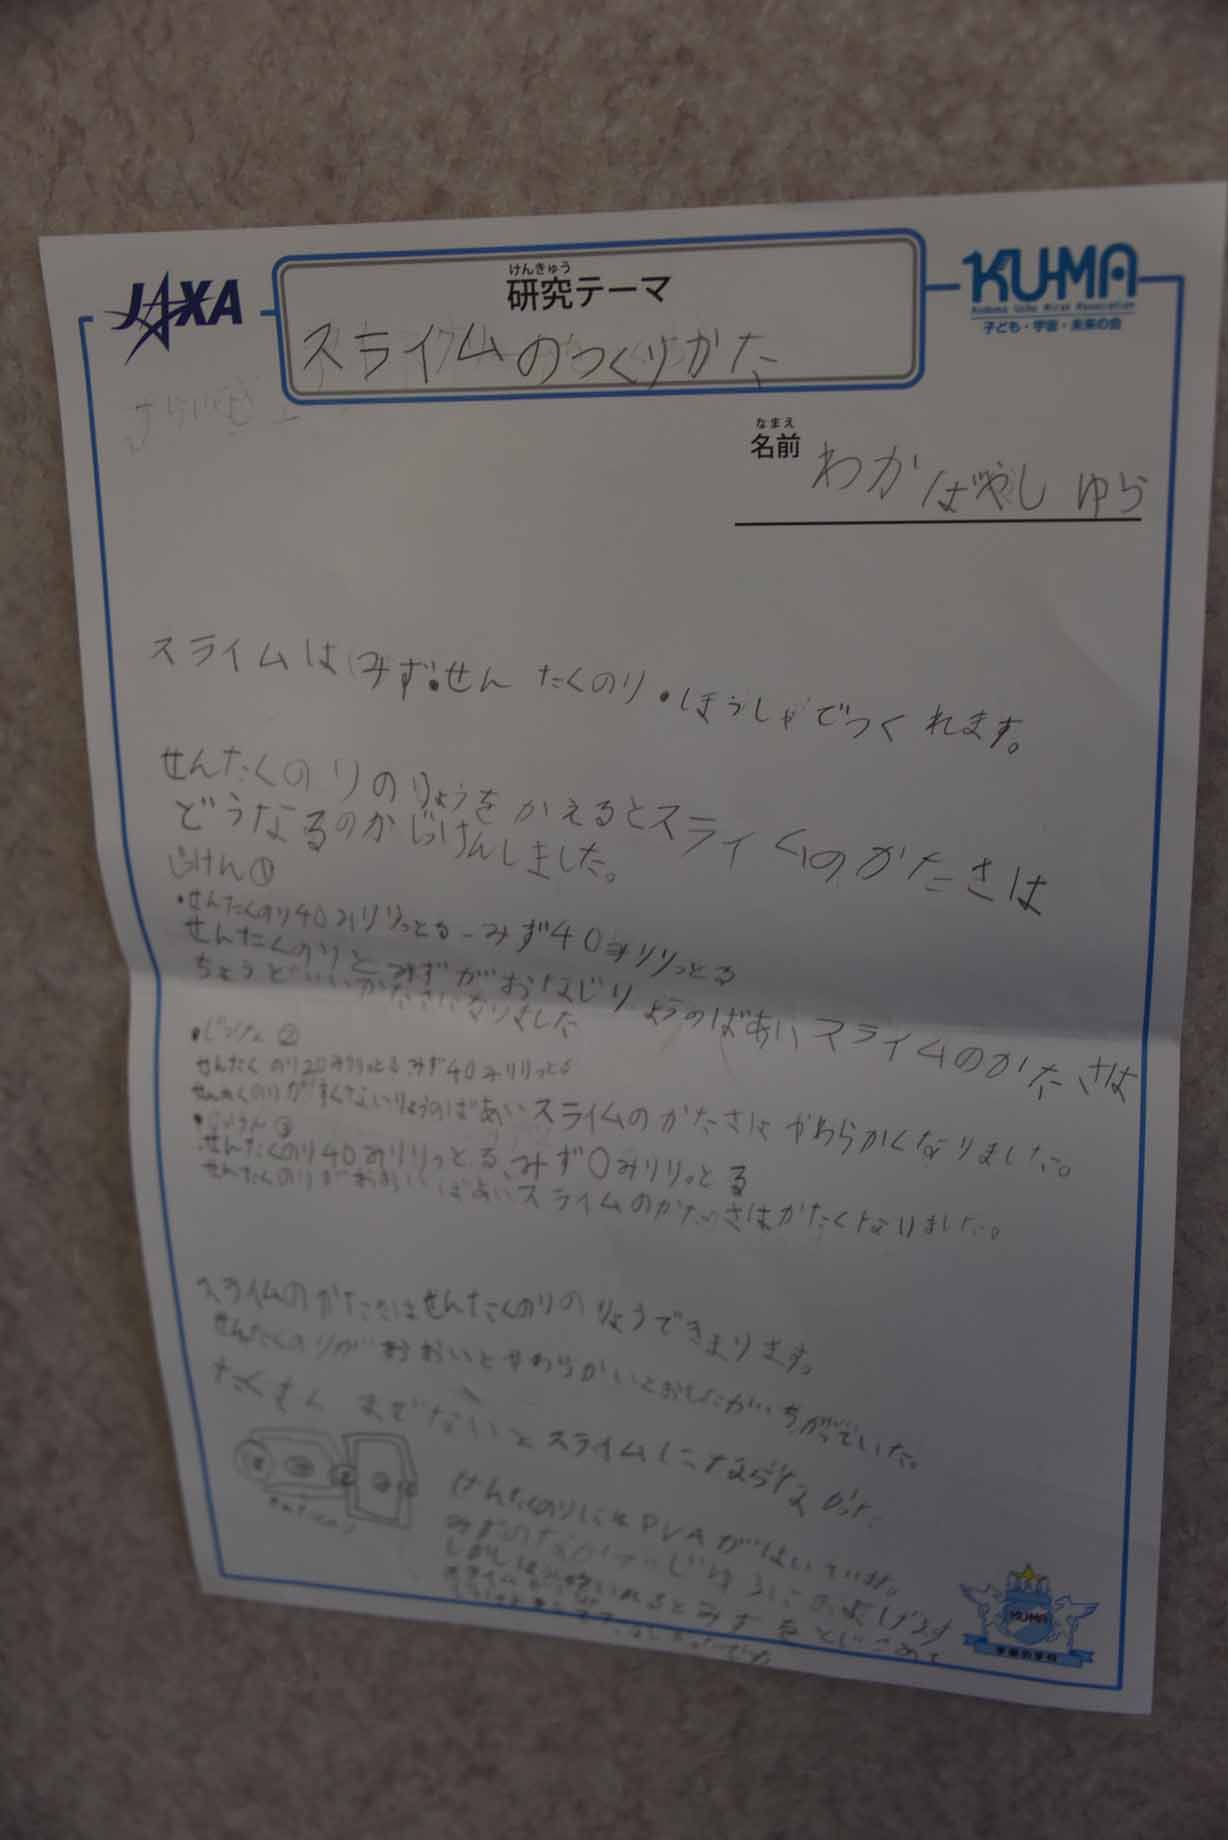 JAXA
けんきゅう
研究テーマ
KUMA
Kodomo Uchu Mirai Association
子ども・宇宙・未来の会
スライムのつくりかた
なまえ
名前 わかばやし ゆら
スライムはみず・せんたくのり・ほうしゃでつくれます。
せんたくのりのりょうをかえるとスライムのかたさは
どうなるのかじっけんしました。
じけん①
・せんたくのり40みりりっとる-みず40みりりっとる
せんたくのりとみずがおなじりょうのばあいスライムのかたさは
ちょうどいいかたさになりました
・じっけん②
せんたくのり20みりりっとるみず40みりりっとる
せんたくのりがすくないりょうのばあいスライムのかたさはやわらかくなりました。
・じっけん③
せんたくのり40みりりっとる、みず0みりりっとる
せんたくのりがおおいばあいスライムのかたさはかたくなりました。
スライムのかたさはせんたくのりのりょうできまります。
せんたくのりがおおいとやわらかいとおもったがちがっていた。
たくさんまぜないとスライムにならなかった
せんたくのりにはPVAがはいています。
みずのなかで
いれるとみずをとじこめて
スライム
KUMA
宇宙の学校